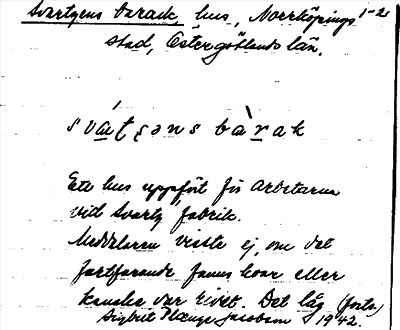 Svartzens barack, hus, Norrköpings 1-2
stad, Östergötlands län.
svátʂəns bàrak
Ett hus uppfört för arbetarna
vid Svartz fabrik.
Meddelaren visste ej, om det
fortfarande fanns kvar eller
kanske var rivet. Det låg (forts.)
Sigbrit Plænge Jacobson 1942.